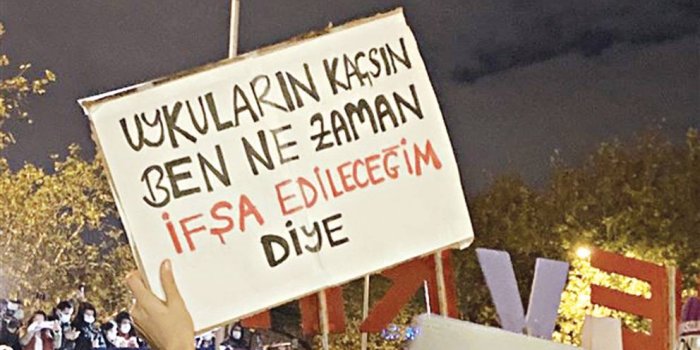 UYKULARIN KAÇSIN
BEN NE ZAMAN
İFŞA EDİLECEĞİM
DİYE